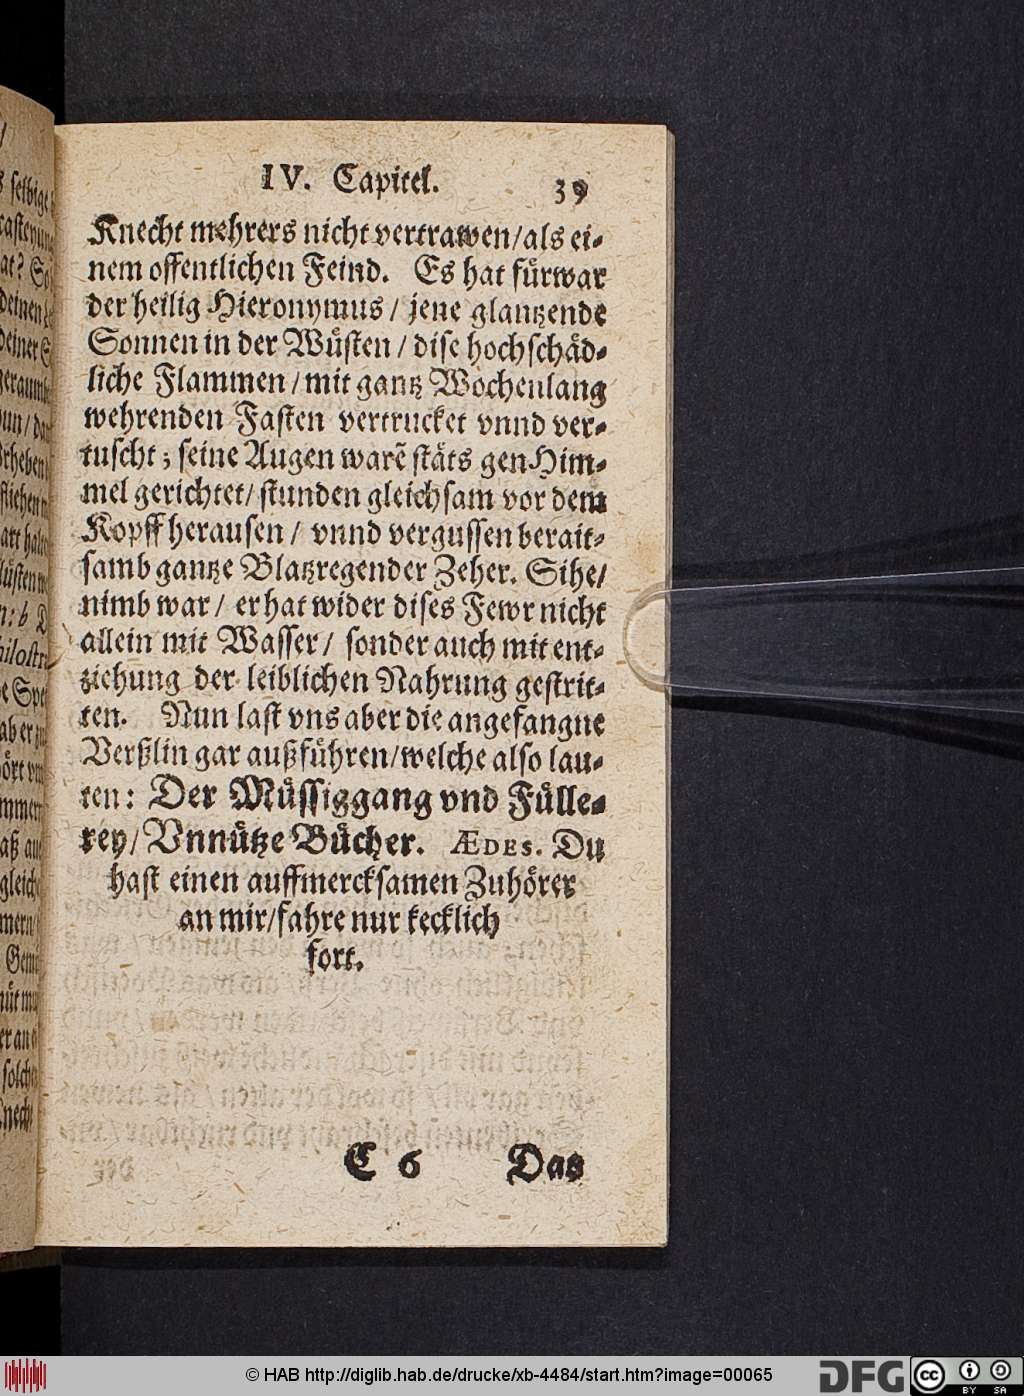 IV. Capitel. 39
Knecht mehrers nicht vertrawen/als ei-
nem offentlichen Feind. Es hat fürwar
der heilig Hieronymus/ jene glantzende
Sonnen in der Wüsten/ dise hochschäd-
liche Flammen/mit gantz Wochenlang
wehrenden Fasten vertrucket vnnd ver-
tuscht; seine Augen warẽ stäts gen Him-
mel gerichtet/ stunden gleichsam vor dem
Kopff herausen/ vnnd vergussen berait-
samb gantze Blatzregen der Zeher. Sihe/
nimb war/ er hat wider dises Fewr nicht
allein mit Wasser/ sonder auch mit ent-
ziehung der leiblichen Nahrung gestrit-
ten. Nun last vns aber die angefangne
Verßlin gar außführen/welche also lau-
ten: Der Müssiggang vnd Fülle-
rey/ Vnnütze Bücher. ÆDES. Du
hast einen auffmercksamen Zuhörer
an mir/fahre nur kecklich
fort.
C 6 Das
© HAB http://diglib.hab.de/drucke/xb-4484/start.htm?image=00065
DFG
cc BY SA